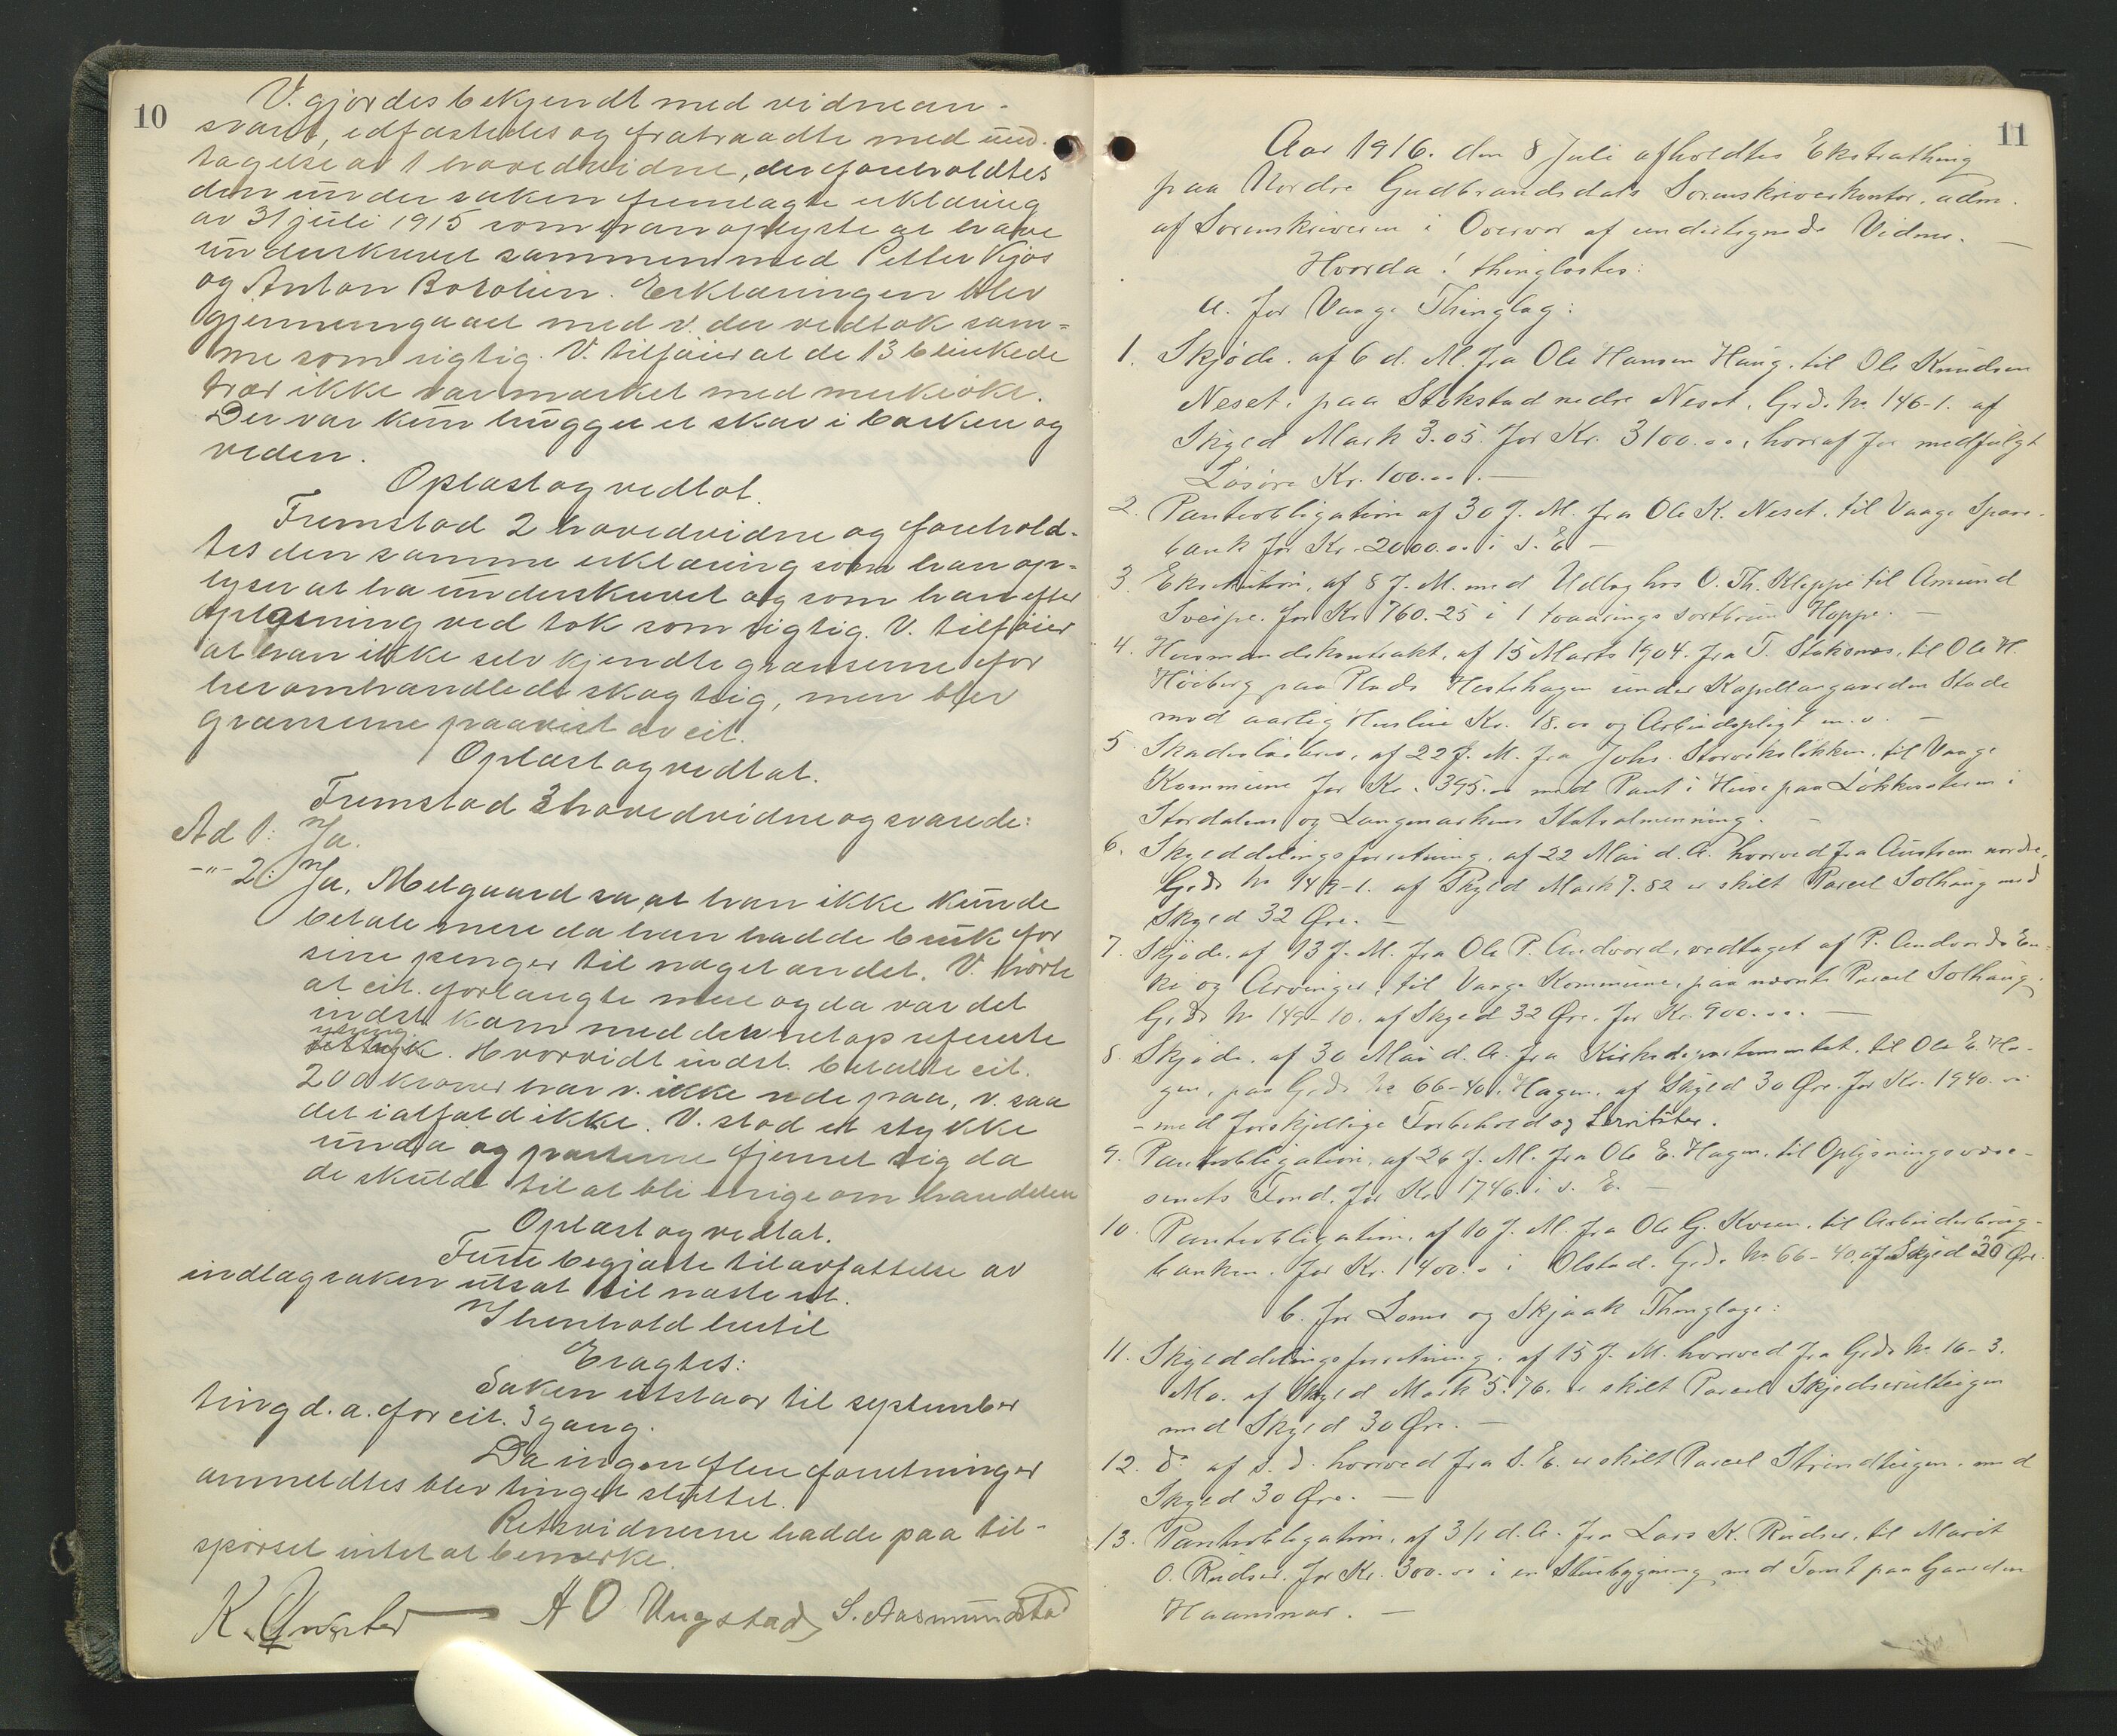 10
V. gjordes bekjendt med vidnean-
svaret, edfæstedes og fratraadte med und-
tagelse av 1 hovedvidne, der foreholdtes
den under saken fremlagte erklæring
av 31 juli 1915 som han oplyste at have
underskrevet sammen med Petter Kjøs
og Anton Bakolien. Erklæringen blev
gjennemgaaet med v. der vedtok sam-
me som rigtig. V. tilføier at de 13 blinkede
trær ikke var mærket med merkeøks.
Der var kun hugget et skar i barken og
veden.
Oplæst og vedtat.
Fremstod 2 hovedvidne og forehold-
tes den samme erklæring som han op-
lyser at ha underskrevet og som han efter
oplæsning ved tok som rigtig. V. tilføier
at han ikke selv kjendte grænserne for
heromhandlede skogteig, men blev
grænserne paavist av cit.
Oplæst og vedtat.
Fremstod 3 hovedvidne og svarede:
Ad 1: Ja.
-"- 2: Ja, Melgaard sa, at han ikke kunde
betale mere da han hadde bruk for
sine penger til noget andet. V. hørte
at cit. forlangte mere og da var det
indst. kom med den netop refererte
ytring. Hvorvidt indst. betalte cit.
200 kroner har v. ikke rede paa, v. saa
det ialfald ikke. V. stod et stykke
unda og parterne fjernet sig da
de skulde til at bli enige om handelen
Oplæst og vedtat.
Furu begjærte til avfattelse av
indlæg saken utsat til næste ret.
I henhold hertil
Eragtes:
Saken utstaar til september
ting d. a. for cit. 3 gang.
Da ingen flere forretninger
anmeldtes blev tinget sluttet.
Retsvidnerne hadde paa til-
spørsel intet at bemerke.
A O Ungstad S. Aasmundstad
11
Aar 1916. den 8 Juli afholdtes Ekstrathing
paa Nordre Gudbrandsdals Sorenskriverkontor, adm.
af Sorenskriveren i Overvær af undertegnede Vidner. —
Hvorda! thinglæstes:
a. for Vaage Thinglag:
1. Skjøde. af 6 d. M. fra Ole Hansen Haug. til Ole Knudsen
Neset, paa Stokstad nedre Neset, Grds. No 146-1. af
Skyld Mark 3.05. for Kr. 3100.00, hvoraf for medfulgt
Løsøre Kr. 100.00. —
2. Panteobligation af 30 f. M. fra Ole K. Neset. til Vaage Spare-
bank for Kr. 2000.00 i s. E. —
3. Eksekution, af 8 f. M. med Udlæg hos O. Th. Kleppe til Amund
Sveipe. for Kr 760.25 i 1 toaarings sortbrun Hoppe. —
4. Husmandskontrakt, af 15 Marts 1904. fra T. Stokenes, til Ole H.
Høiberg paa Plads Hestehagen under Kapellangaarden Stade
mod aarlig Husleie Kr. 18.00 og Arbeidspligt m. v. —
5. Skadesløsbrev, af 22 f. M. fra Johs. Storvikslökken, til Vaage
Kommune for Kr. 395.00 med Pant i Huse paa Løkkesæteren i
Stordalens og Langmorkens Statsalmenning. —
6. Skylddelingsforretning, af 22 Mai d. A. hvorved fra Austrem nordre,
Grds No 149-1. af Skyld Mark 7.82 er skilt Parcel Solhaug med
Skyld 32 Øre. —
7. Skjøde. af 13 f. M. fra Ole P. Andvord, vedtaget af P. Andvords En-
ke og Arvinger, til Vaage Kommune, paa nævnte Parcel Solhaug
Grds No 149-10. af Skyld 32 Øre. for Kr. 900.00. —
8. Skjøde. af 30 Mai d. A. fra Kirkedepartementet, til Ole E. Ha-
gen, paa Grds No 66-40. Hagen, af Skyld 30 Øre. for Kr. 1940.00
- med forskjellige Forbehold og Servitüter.
9. Panteobligation, af 26 f. M. fra Ole E. Hagen. til Oplysningsvæse-
senets Fond. for Kr 1746. i s. E. —
10. Panteobligation, af 10 f. M. fra Ole G. Kvem, til Arbeiderbrug-
banken. for Kr. 1400.00 i Olstad. Grds No 66-40. af Skyld 20 Øre.
b. for Loms og Skjaak Thinglag:
11. Skylddelingsforretning, af 15 f. M. hvorved fra Grds No 16-3.
Mo. af Skyld Mark 5.76. er skilt Parcel
med Skyld 30 Øre. —
12. do af s. d. hvorved fra s. E. er skilt Parcel Strindteigen, med
Skyld 30 Øre. —
13. Panteobligation, af 3/1 d. A. fra Lars K. Rudser, til Marit
O. Rudser. for Kr. 300.00 i en Stuebygning med Tomt paa Gaarden
Haamnor. —